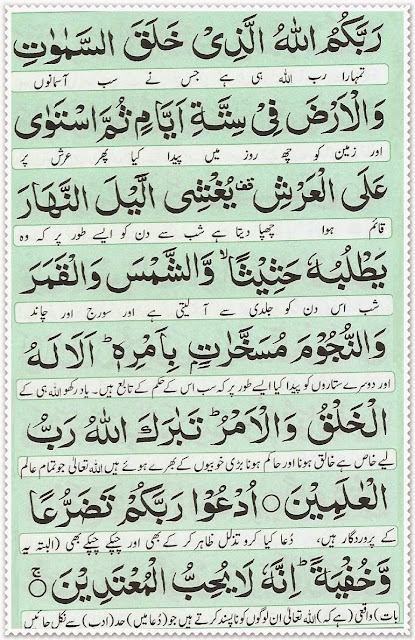 رَبَّكُمُ اللّٰهُ الَّذِىْ خَلَقَ السَّمٰوٰتِ
تمہارا رب اللہ ہی ہے جس نے سب آسمانوں
وَالْاَرْضَ فِىْ سِتَّةِ اَيَّامٍ ثُمَّ اسْتَوٰى
اور زمین کو چھ روز میں پیدا کیا پھر عرش پر
عَلَى الْعَرْشِ قف يُغْشِى الَّيْلَ النَّهَارَ
قائم ہوا چھپا دیتا ہے شب سے دن کو ایسے طور پر کہ وہ
يَطْلُبُهٗ حَثِيْثًا ۙ وَّالشَّمْسَ وَالْقَمَرَ
شب اس دن کو جلدی سے آ لیتی ہے اور سورج اور چاند
وَالنُّجُوْمَ مُسَخَّرٰتٍۭ بِاَمْرِهٖ ؕ اَلَا لَهُ
اور دوسرے ستاروں کو پیدا کیا ایسے طور پر کہ سب اس کے حکم کے تابع ہیں۔ یاد رکھو اللہ ہی کے
الْخَلْقُ وَالْاَمْرُ ؕ تَبٰرَكَ اللّٰهُ رَبُّ
لیے خاص ہے خالق ہونا اور حاکم ہونا بڑی خوبیوں کے بھرے ہوئے ہیں اللہ تعالیٰ جو تمام عالم
الْعٰلَمِيْنَ ○ اُدْعُوْا رَبَّكُمْ تَضَرُّعًا
کے پروردگار ہیں، دُعا کیا کرو تذلل ظاہر کر کے بھی اور چپکے چپکے بھی (البتہ یہ
وَّخُفْيَةً ؕ اِنَّهٗ لَا يُحِبُّ الْمُعْتَدِيْنَ ○ ج
بات) واقعی (ہے کہ) اللہ تعالیٰ ان لوگوں کو ناپسند کرتے ہیں جو (دُعا میں) حد (ادب) سے نکل جائیں